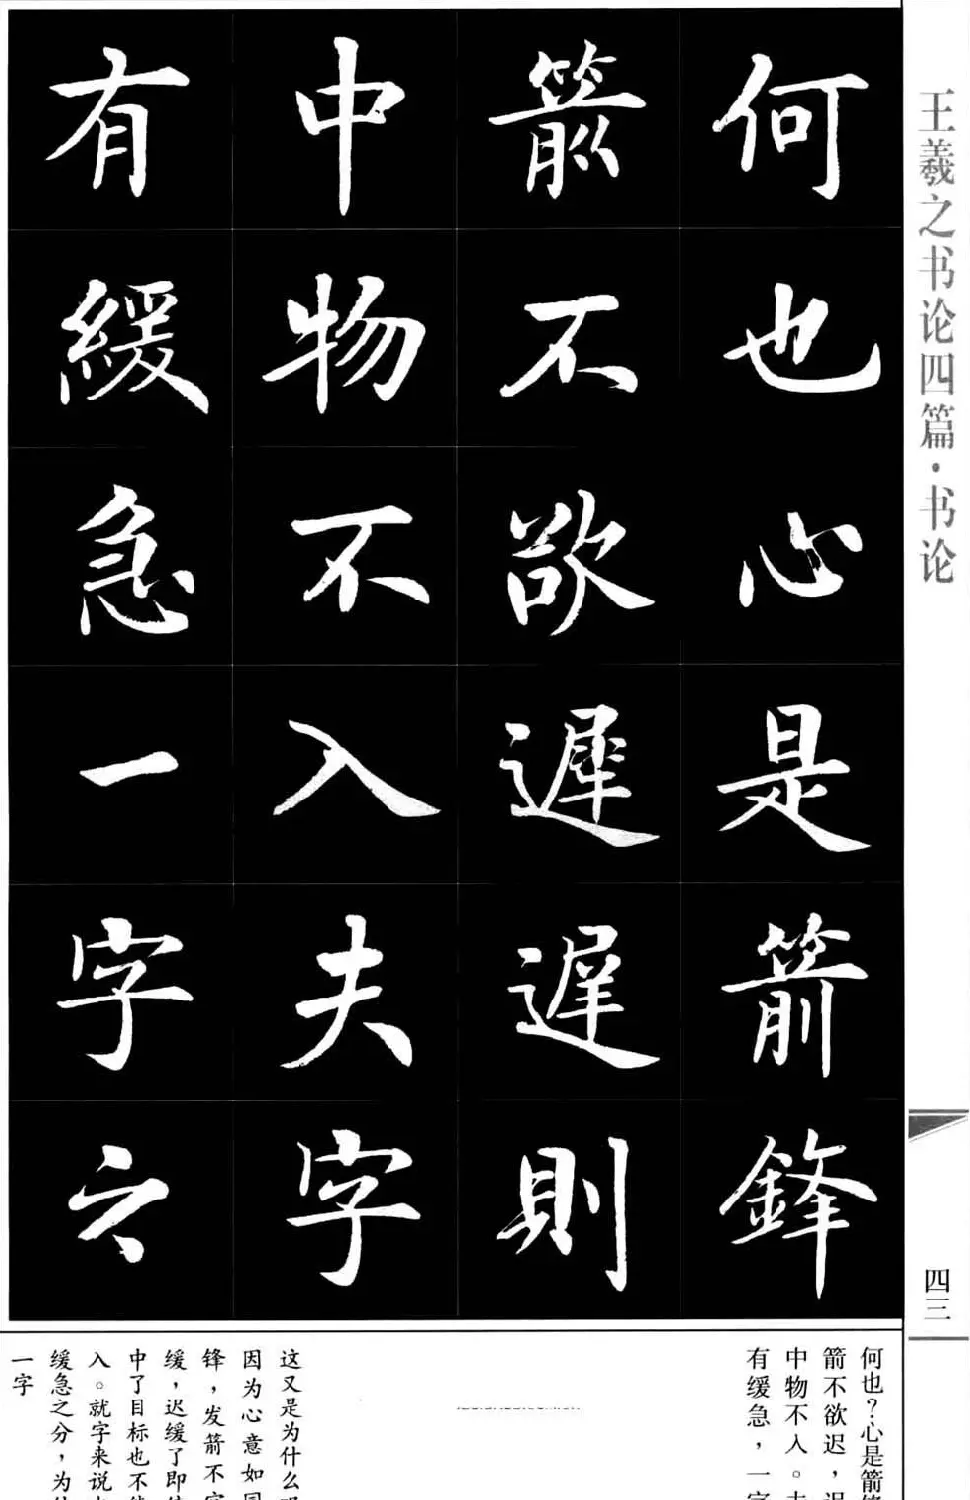 王羲之书论四篇·书论
四三
何也心是箭鋒
箭不欲遲遲則
中物不入夫字
有緩急一字之
何也？心是箭
箭不欲迟，迟
中物不入。夫
有缓急，一字
这又是为什么
因为心意如同
锋，发箭不宜
缓，迟缓了即
中了目标也不能
入。就字来说
缓急之分，为
一字